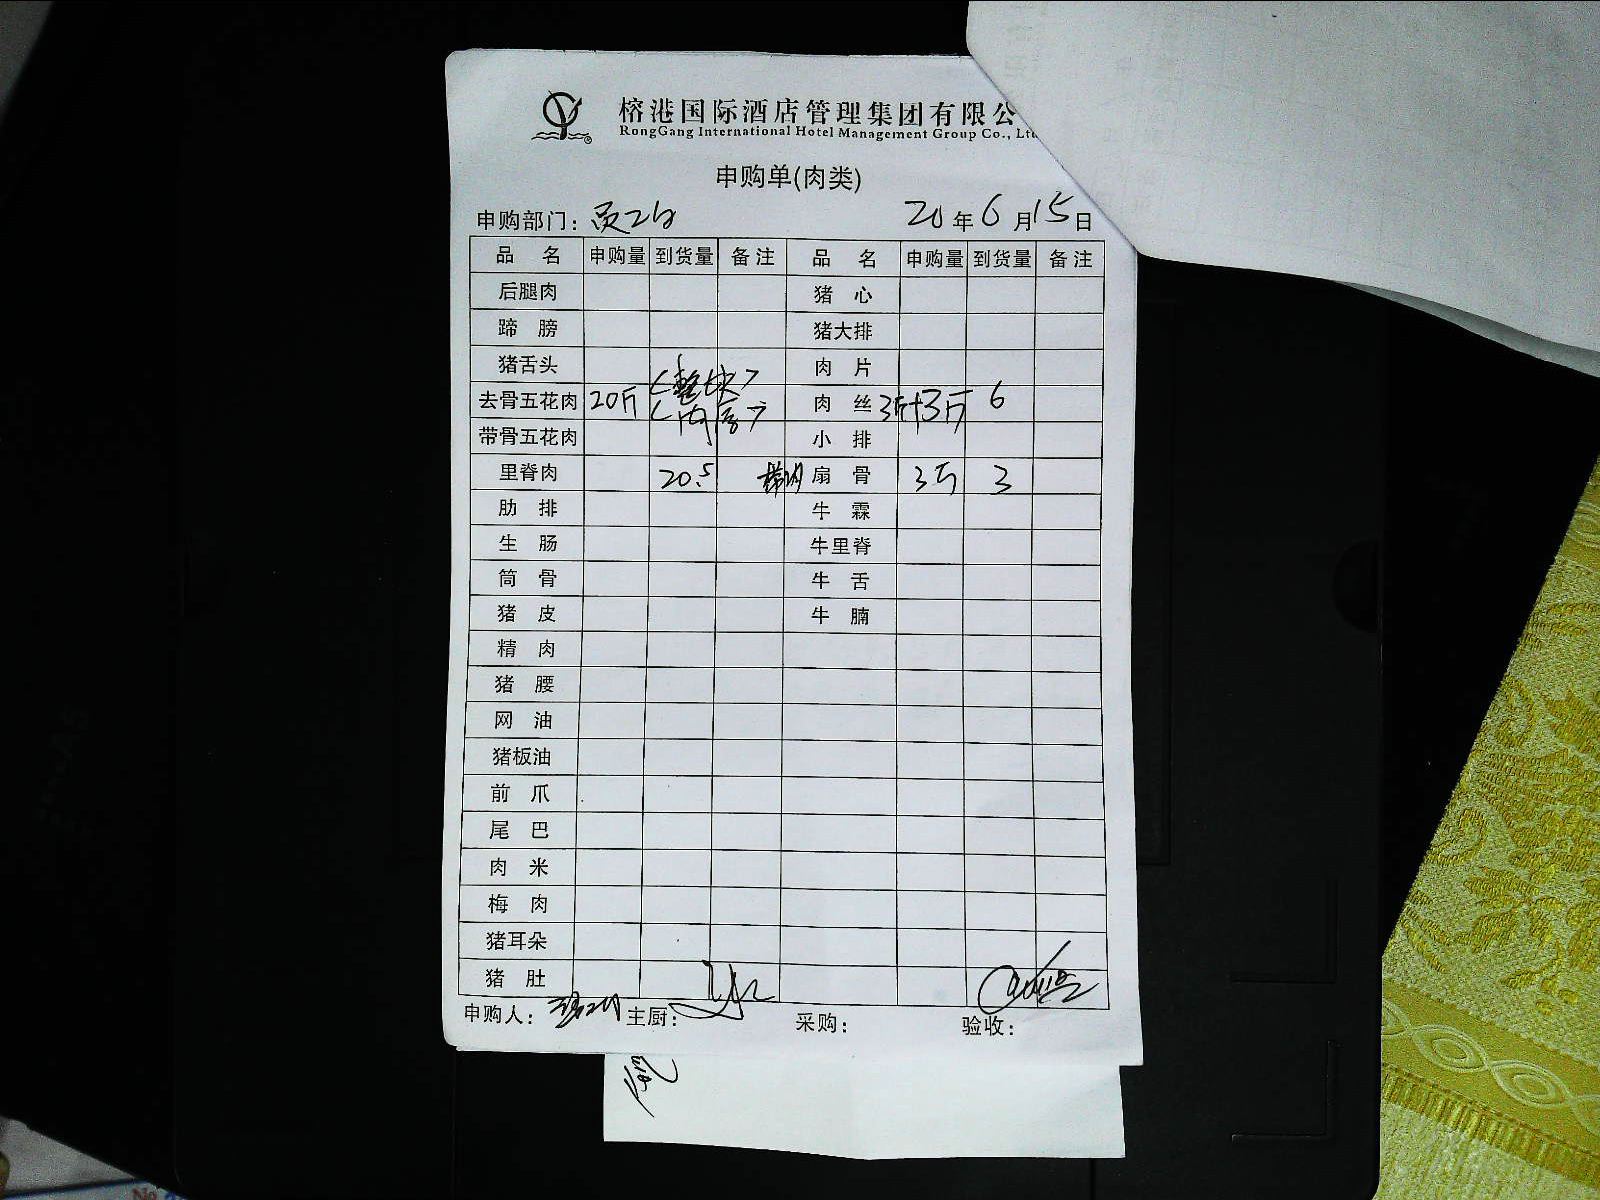 榕港国际酒店管理集团有限公
RongGang International Hotel Management Group Co., Ltd
申购单(肉类)
申购部门：员工 20年6月15日
品名 申购量 到货量 备注 品名 申购量 到货量 备注
后腿肉 猪心
蹄膀 猪大排
猪舌头 肉片
去骨五花肉 20斤 (整块) 肉丝 3斤+3斤 6
带骨五花肉 小排
里脊肉 20.5 带肉 扇骨 3斤 3
肋排 牛霖
生肠 牛里脊
筒骨 牛舌
猪皮 牛腩
精肉
猪腰
网油
猪板油
前爪
尾巴
肉米
梅肉
猪耳朵
猪肚
申购人： 主厨： 采购： 验收：
No